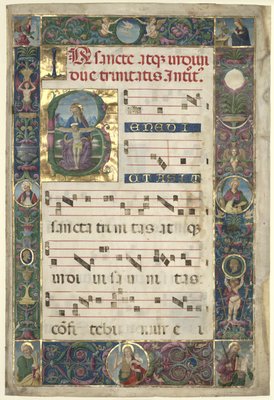 In sancte atq; indiui
due trinitatis Introit
B
ENEDI
CTA SIT
sancta trini tas atq;
indi ui sa uni tas
cōfi tebi mur e i